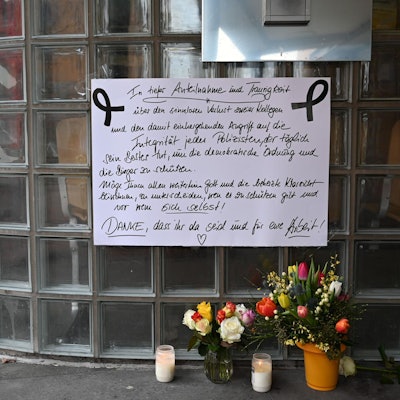 In tiefer Anteilnahme und Traurigkeit
über den sinnlosen Verlust zweier Kollegen
und den damit einhergehenden Angriff auf die
Integrität jedes Polizisten, der täglich
sein Bestes tut, um die demokratische Ordnung und
die Bürger zu schützen.
Möge Ihnen allen weiterhin Gott und die Klarsicht
zu unterscheiden, wen es zu schützen gilt und
vor wem sich selbst!
DANKE, dass ihr da seid und für eure Arbeit!